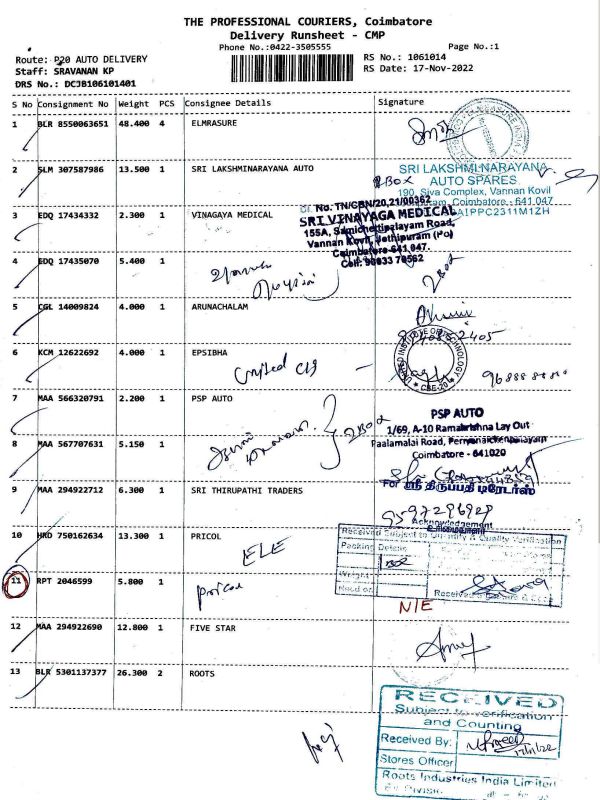 THE PROFESSIONAL COURIERS, Coimbatore
Delivery Runsheet - CMP
Phone No.:0422-3505555
Page No.:1
Route: P20 AUTO DELIVERY
RS No.: 1061014
Staff: SRAVANAN KP
RS Date: 17-Nov-2022
DRS No.: DCJB106101401
S No Consignment No Weight PCS Consignee Details Signature
1 BLR 8550063651 48.400 4 ELMRASURE
2 SLM 307587986 13.500 1 SRI LAKSHMINARAYANA AUTO
SRI LAKSHMI NARAYANA
AUTO SPARES
2 BOX
190, Siva Complex, Vannan Kovil
Coimbatore - 641 047
3 EDQ 17434332 2.300 1 VINAGAYA MEDICAL
No. TN/CBN/20,21/00362
SRI VINAYAGA MEDICAL
155A, Samichettipalayam Road,
Vannan Kovil, Jothipuram (Po)
Coimbatore-641 047.
Cell: 90033 70562
4 EDQ 17435070 5.400 1
2 Box
5 CGL 14009824 4.000 1 ARUNACHALAM
6 KCM 12622692 4.000 1 EPSIBHA
UNITED INSTITUTE OF TECHNOLOGY
CBE-20
United
7 MAA 566320791 2.200 1 PSP AUTO
PSP AUTO
1/69, A-10 Ramakrishna Lay Out
2 BOX
Paalamalai Road, Perryanaickenpalayam
Coimbatore - 641020
8 MAA 567707631 5.150 1
9 MAA 294922712 6.300 1 SRI THIRUPATHI TRADERS
For ஸ்ரீ திருப்பதி டிரேடர்ஸ்
9597296929
Acknowledgement
10 HRD 750162634 13.300 1 PRICOL
Received Subject to Quantity & Quality Verification
Packing Details
ELE
11 RPT 2046599 5.800 1
Weight
Pricol
N/E
12 MAA 294922690 12.800 1 FIVE STAR
13 BLR 5301137377 26.300 2 ROOTS
RECEIVED
Subject to verification
and Counting
Received By:
17/11/22
Stores Officer
Roots Industries India Limited